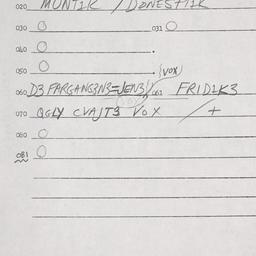 020 MUNTIK / DONESTIK
030 O 031 O
040 O
050 O (VOX)
060 D3 FARGANG3N3=JEN3// 061 FRID1K3
070 OGLY CVAJT3 VOX / +
080 O
081 O